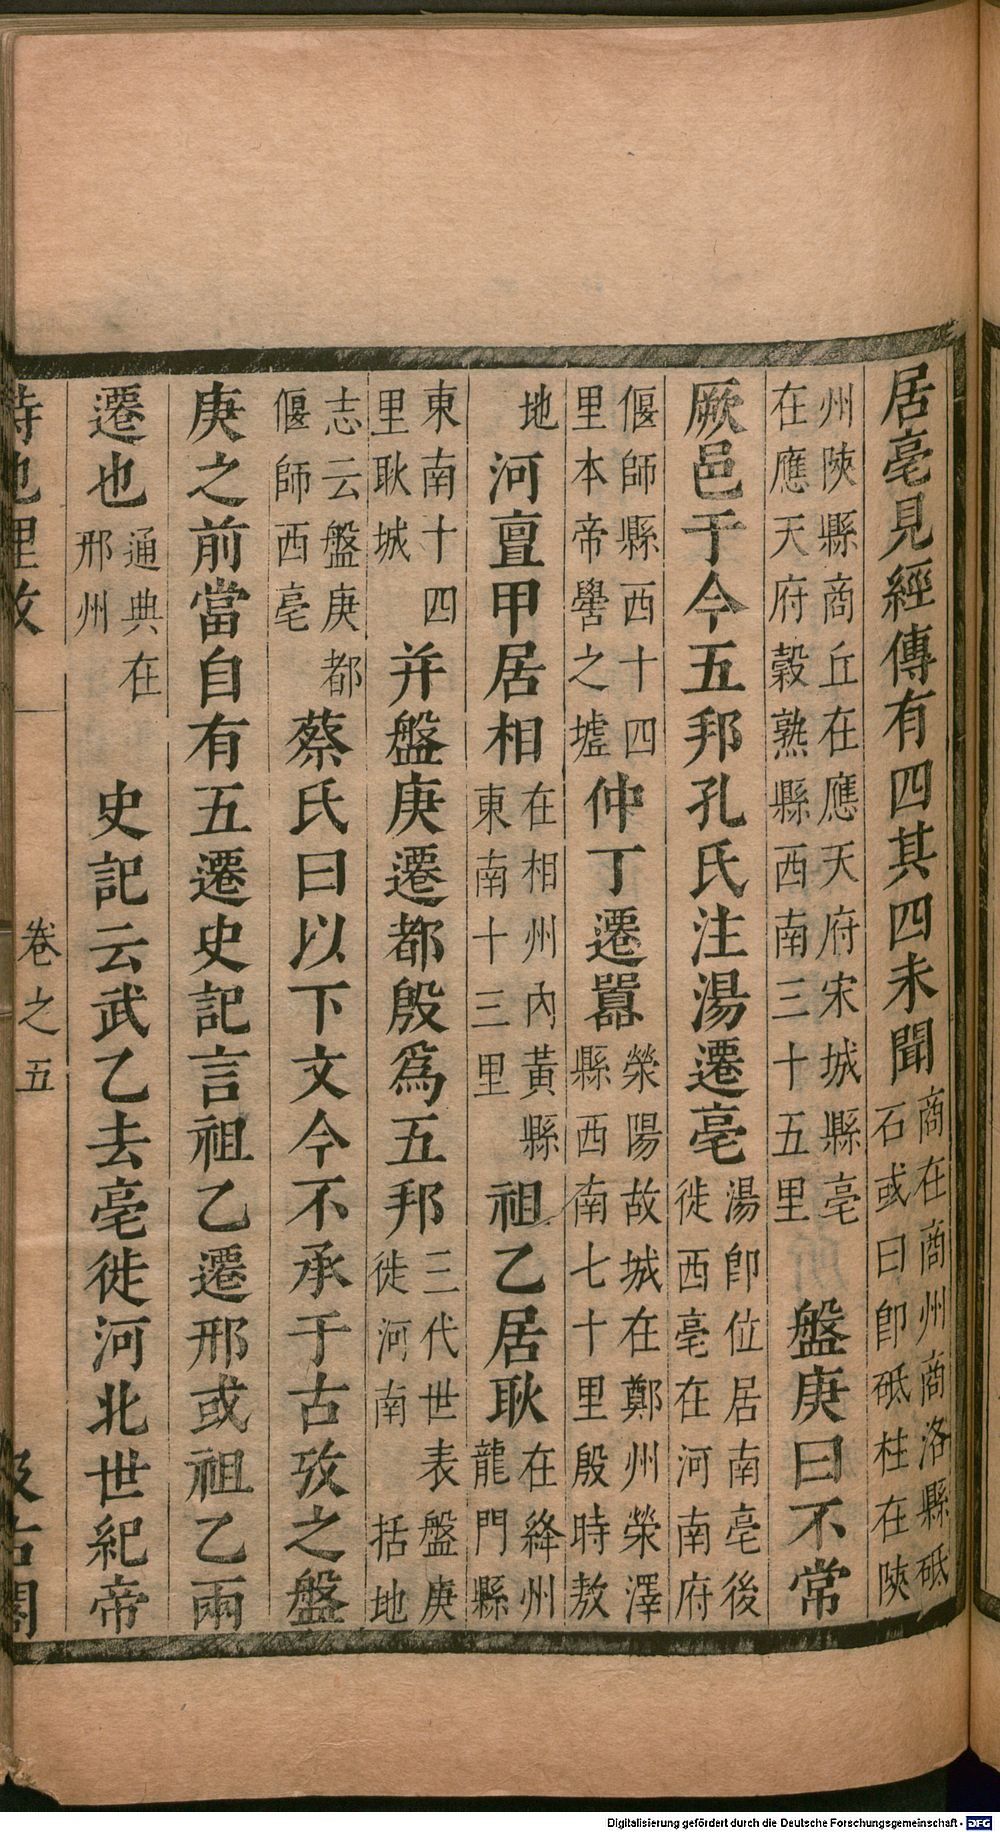 居亳見經傳有四其四未聞商在商州商洛縣砥石或曰卽砥柱在陝
州陝縣商丘在應天府宋城縣亳在應天府穀熟縣西南三十五里盤庚曰不常
厥邑于今五邦孔氏注湯遷亳湯卽位居南亳後徙西亳在河南府
偃師縣西十四里本帝嚳之墟仲丁遷囂榮陽故城在鄭州榮澤縣西南七十里殷時敖
地河亶甲居相在相州內黃縣東南十三里祖乙居耿在絳州龍門縣
東南十四里耿城并盤庚遷都殷爲五邦三代世表盤庚徙河南括地
志云盤庚都偃師西亳蔡氏曰以下文今不承于古攷之盤
庚之前當自有五遷史記言祖乙遷邢或祖乙兩
遷也通典在邢州史記云武乙去亳徙河北世紀帝
詩地理攷 卷之五 汲古閣
Digitalisierung gefördert durch die Deutsche Forschungsgemeinschaft - DFG